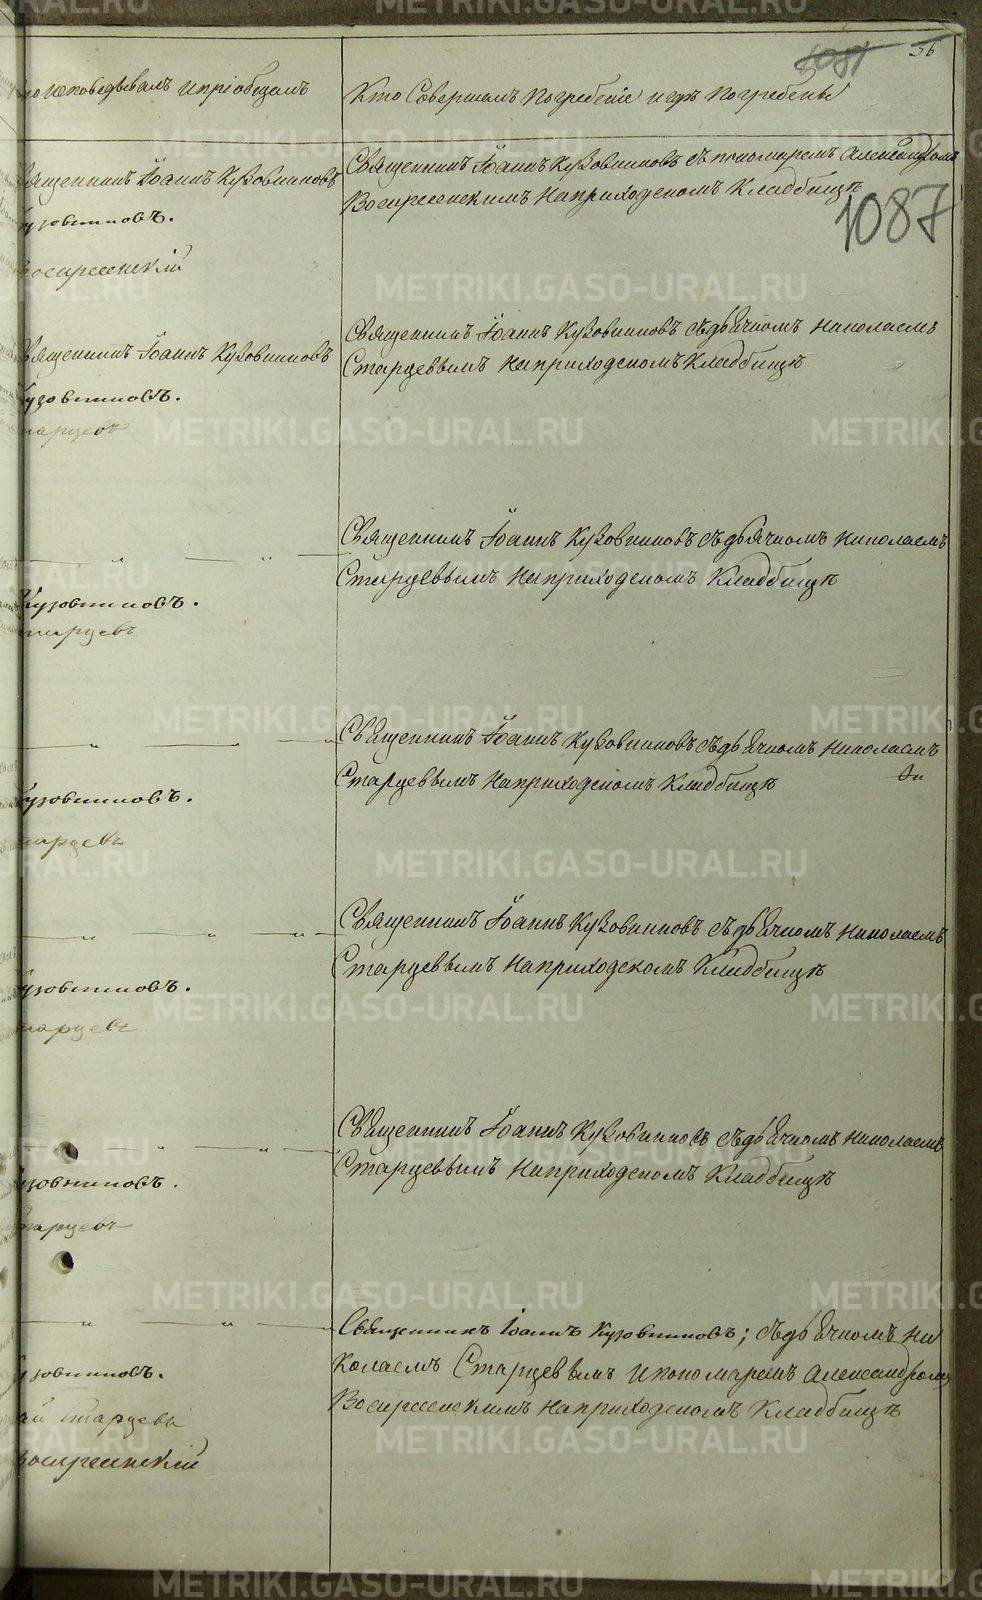 56
1087
исповѣдывалъ и пріобщалъ
Кто Совершалъ Погребеніе и гдѣ Погребены
Священникъ Іоаннъ Кузовниковъ
Кузовниковъ.
Воскресенскій
Священникъ Іоаннъ Кузовниковъ съ пономаремъ Александромъ
Воскресенскимъ На приходскомъ Кладбищѣ
Священникъ Іоаннъ Кузовниковъ
Кузовниковъ.
Старцевъ
Священникъ Іоаннъ Кузовниковъ съ дьячкомъ Николаемъ
Старцевымъ На приходскомъ Кладбищѣ
— „ — „ —
Кузовниковъ.
Старцевъ
Священникъ Іоаннъ Кузовниковъ съ дьячкомъ Николаемъ
Старцевымъ На приходскомъ Кладбищѣ
— „ — „ —
Кузовниковъ.
Старцевъ
Священникъ Іоаннъ Кузовниковъ съ дьячкомъ Николаемъ
Старцевымъ На приходскомъ Кладбищѣ
— „ — „ — „ —
Кузовниковъ.
Старцевъ
Священникъ Іоаннъ Кузовниковъ съ дьячкомъ Николаемъ
Старцевымъ На приходскомъ Кладбищѣ
— „ — „ —
Кузовниковъ.
Старцевъ
Священникъ Іоаннъ Кузовниковъ съ дьячкомъ Николаемъ
Старцевымъ На приходскомъ Кладбищѣ
— „ — „ —
Кузовниковъ.
Старцевъ
Воскресенскій
Священникъ Іоаннъ Кузовниковъ; съ дьячкомъ Ни
колаемъ Старцевымъ и пономаремъ Александромъ
Воскресенскимъ На приходскомъ Кладбищѣ
METRIKI.GASO-URAL.RU